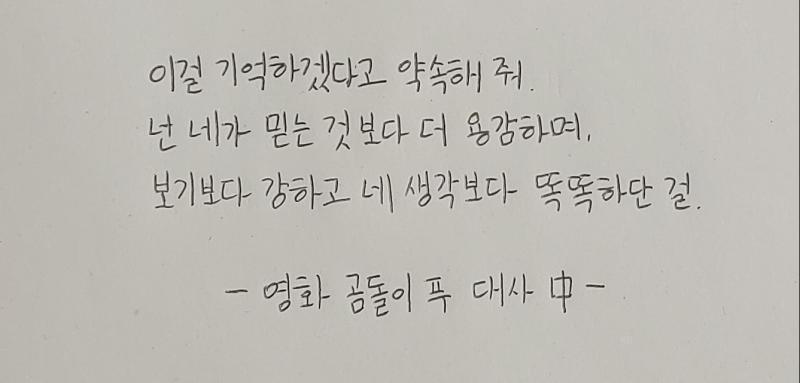 이걸 기억하겠다고 약속해 줘.
넌 네가 믿는 것보다 더 용감하며,
보기보다 강하고 네 생각보다 똑똑하단 걸.
- 영화 곰돌이 푸 대사 中 -